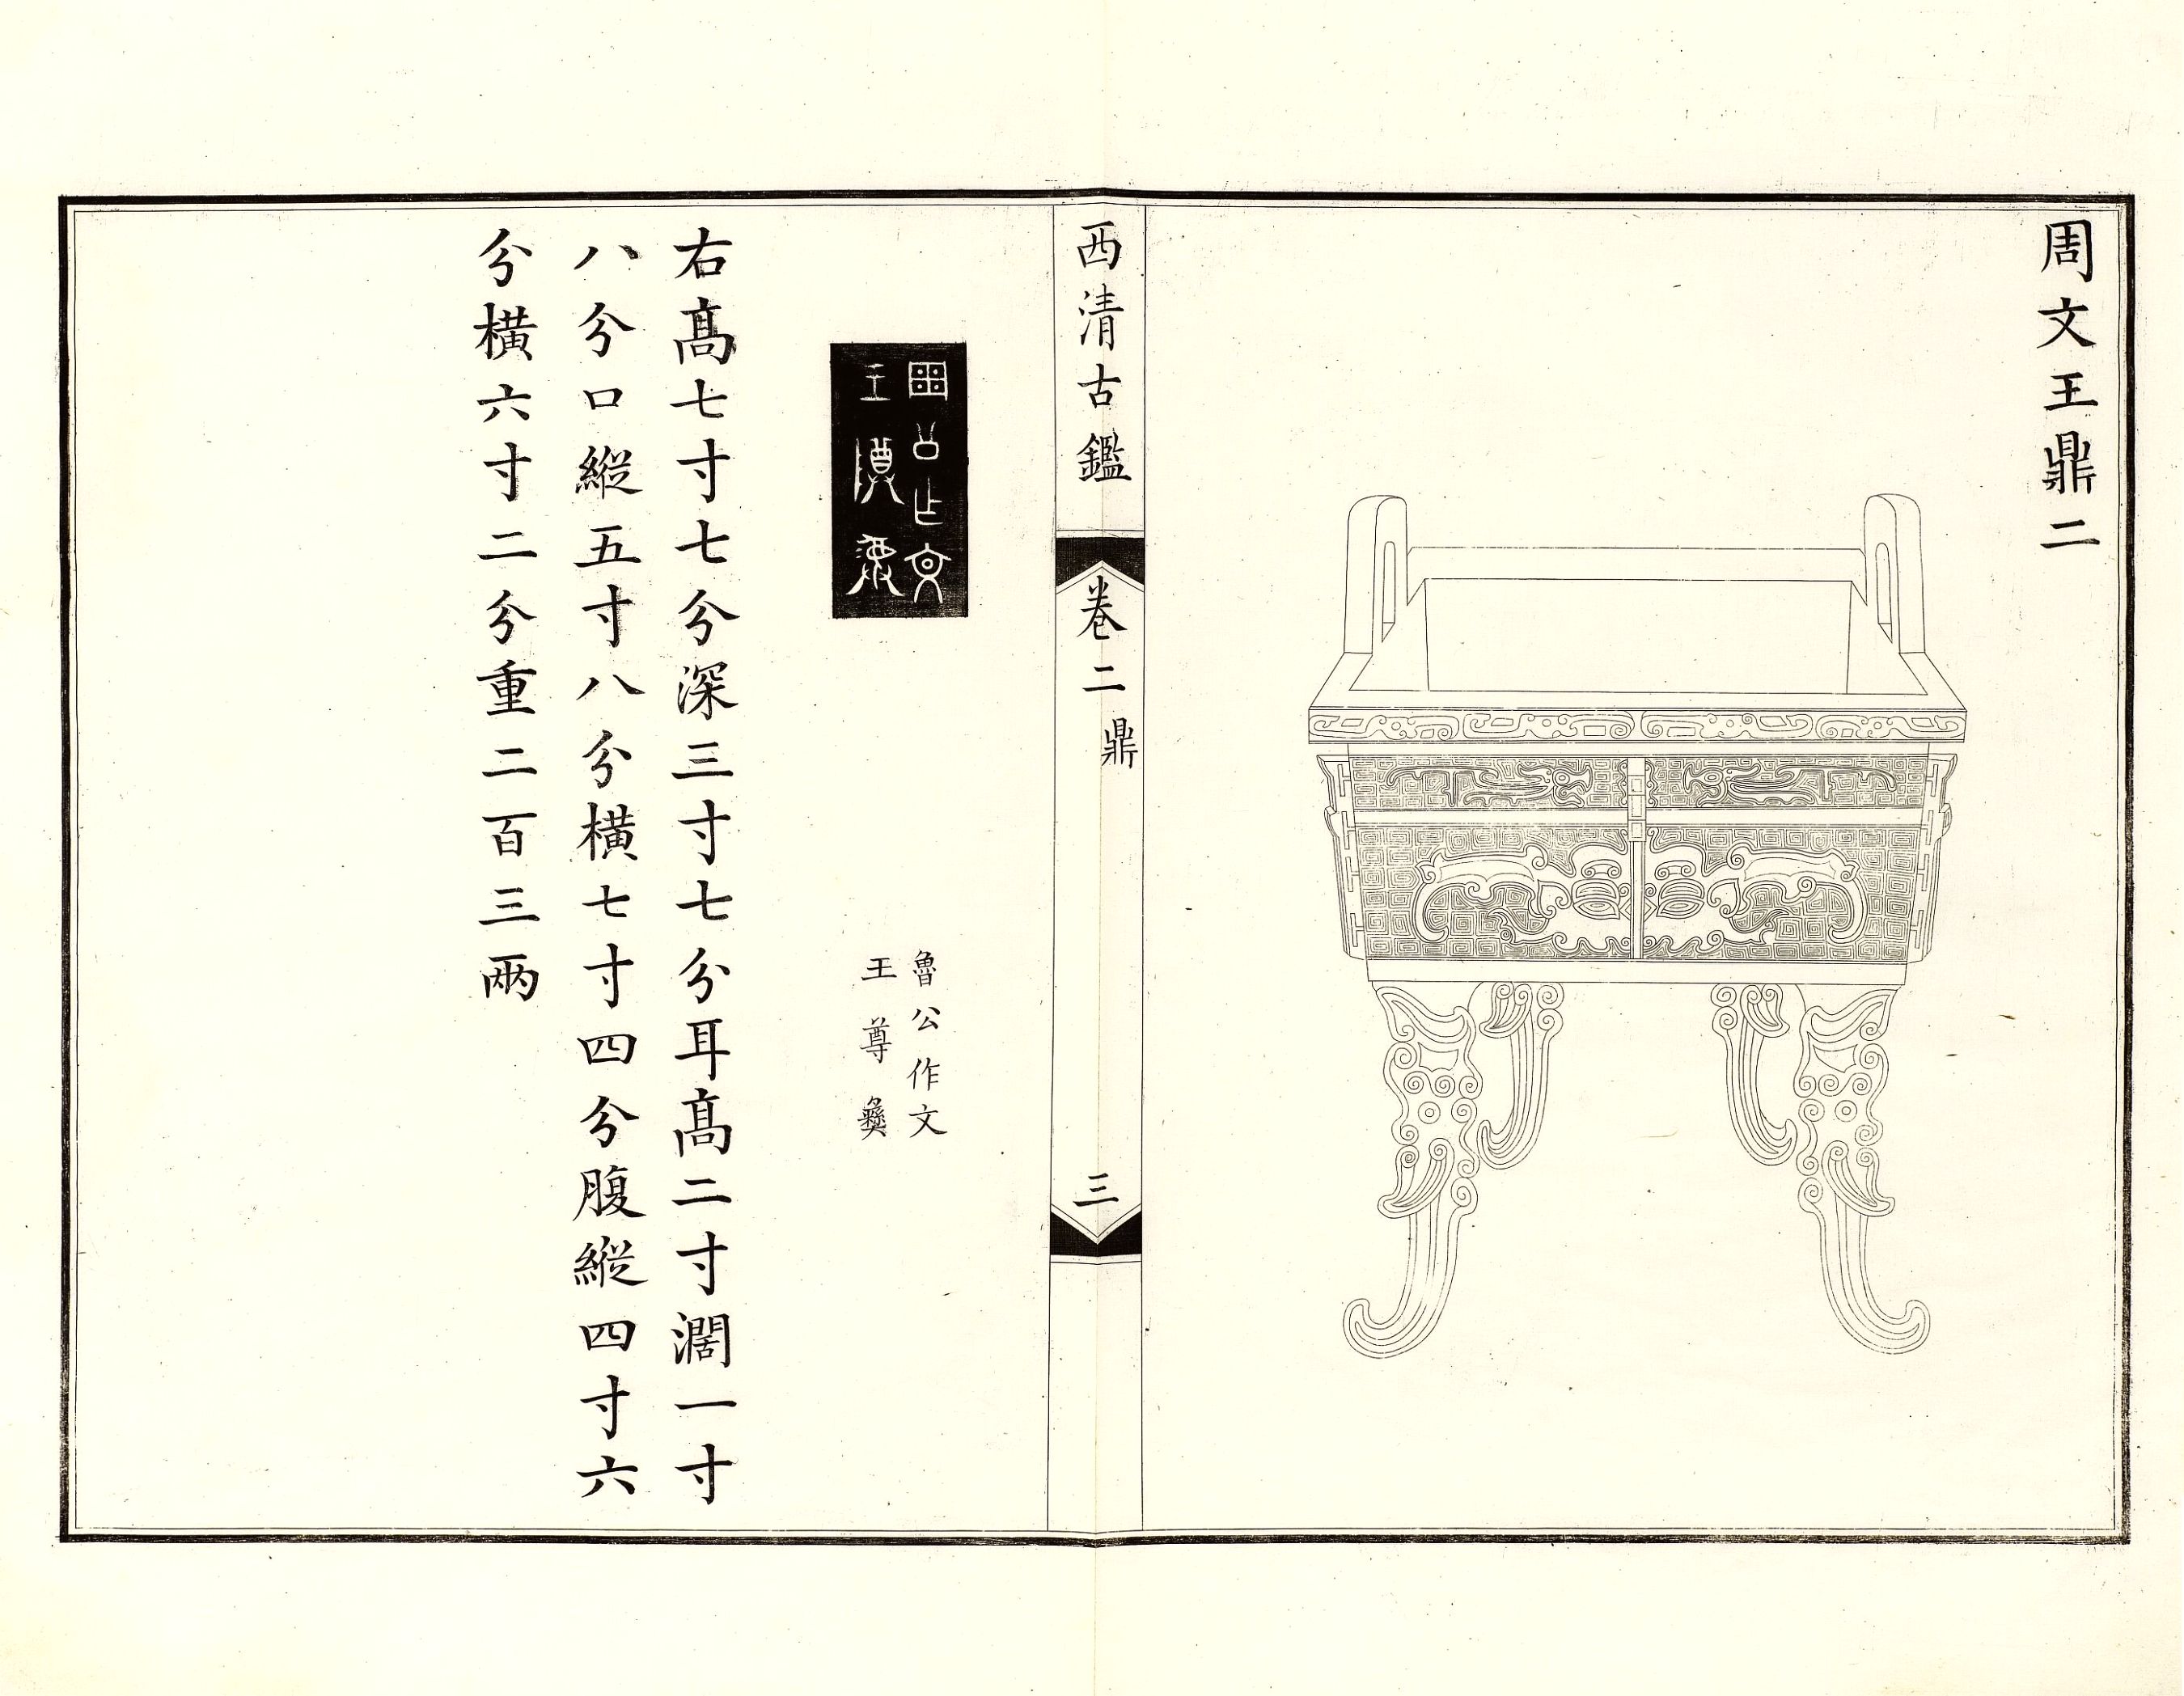 周文王鼎二
西清古鑑
卷二
鼎
三
魯公作文
王尊彝
右髙七寸七分深三寸七分耳髙二寸濶一寸
八分口縱五寸八分橫七寸四分腹縱四寸六
分橫六寸二分重二百三兩